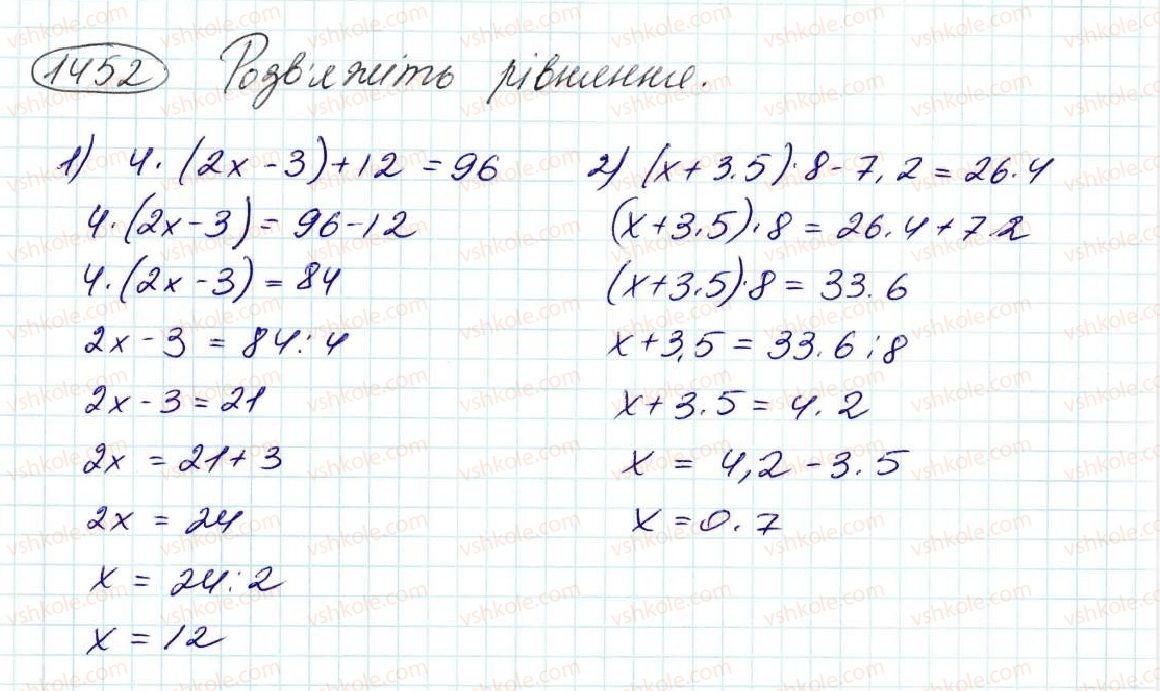 1452 Розв'яжіть рівняння.
1) 4·(2x-3)+12=96
4·(2x-3)=96-12
4·(2x-3)=84
2x-3=84:4
2x-3=21
2x=21+3
2x=24
x=24:2
x=12
2) (x+3.5)·8-7,2=26.4
(x+3,5)·8=26.4+7.2
(x+3,5)·8=33.6
x+3,5=33.6:8
x+3.5=4.2
x=4,2-3.5
x=0.7
vshkole.com